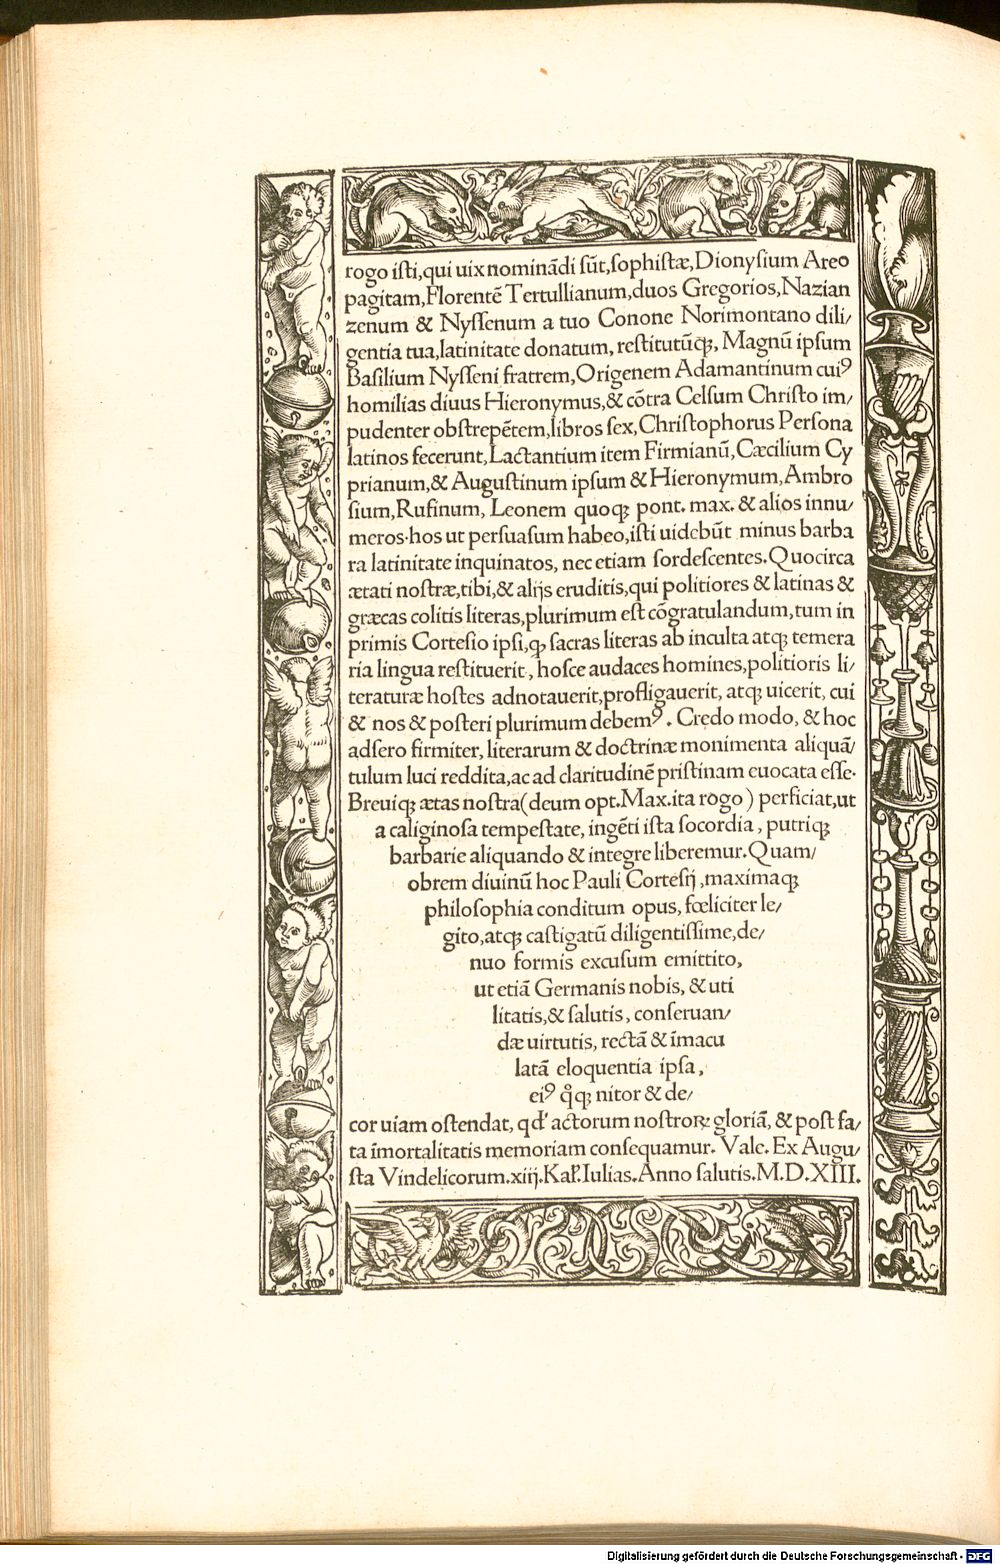 rogo isti,qui uix nominādi sūt,sophistæ,Dionysium Areo
pagitam,Florentē Tertullianum,duos Gregorios,Nazian
zenum & Nyssenum a tuo Conone Norimontano dili/
gentia tua,latinitate donatum, restitutūqꝫ, Magnū ipsum
Basilium Nysseni fratrem,Origenem Adamantinum cuiꝰ
homilias diuus Hieronymus,& cōtra Celsum Christo im/
pudenter obstrepētem,libros sex,Christophorus Persona
latinos fecerunt,Lactantium item Firmianū,Cæcilium Cy
prianum,& Augustinum ipsum & Hieronymum,Ambro
sium,Rufinum, Leonem quoqꝫ pont. max. & alios innu/
meros·hos ut persuasum habeo,isti uidebūt minus barba
ra latinitate inquinatos, nec etiam sordescentes.Quocirca
ætati nostræ,tibi,& alijs eruditis,qui politiores & latinas &
græcas colitis literas,plurimum est cōgratulandum,tum in
primis Cortesio ipsi,ꝙ sacras literas ab inculta atqꝫ temera
ria lingua restituerit, hosce audaces homines,politioris li/
teraturæ hostes adnotauerit,profligauerit, atqꝫ uicerit, cui
& nos & posteri plurimum debemꝰ. Credo modo, & hoc
adsero firmiter, literarum & doctrinæ monimenta aliquā/
tulum luci reddita,ac ad claritudinē pristinam euocata esse.
Breuiqꝫ ætas nostra(deum opt.Max.ita rogo) perficiat,ut
a caliginosa tempestate, ingēti ista socordia, putriqꝫ
barbarie aliquando & integre liberemur.Quam/
obrem diuinū hoc Pauli Cortesij,maximaqꝫ
philosophia conditum opus, fœliciter le/
gito,atqꝫ castigatū diligentissime,de/
nuo formis excusum emittito,
ut etiā Germanis nobis, & uti
litatis,& salutis, conseruan/
dæ uirtutis, rectā & īmacu
latā eloquentia ipsa,
eiꝰ qͦqꝫ nitor & de/
cor uiam ostendat, qd' actorum nostroꝝ gloriā, & post fa/
ta īmortalitatis memoriam consequamur. Vale. Ex Augu/
sta Vindelicorum.xiij.Kal'.Iulias.Anno salutis.M.D.XIII.
Digitalisierung gefördert durch die Deutsche Forschungsgemeinschaft - DFG